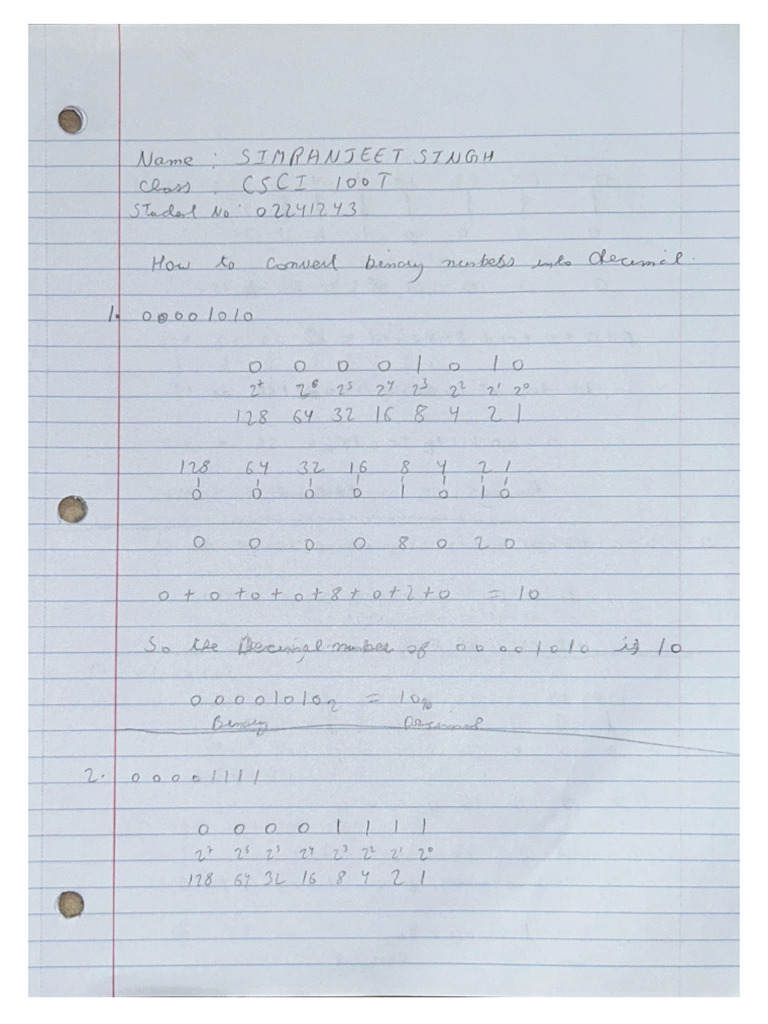 Name : SIMRANJEET SINGH
Class : CSCI 100T
Student No: 02241243
How to convert binary numbers into decimal.
1. 00001010
0 0 0 0 1 0 1 0
2⁷ 2⁶ 2⁵ 2⁴ 2³ 2² 2¹ 2⁰
128 64 32 16 8 4 2 1
128 64 32 16 8 4 2 1
0 0 0 0 1 0 1 0
0 0 0 0 8 0 2 0
0 + 0 + 0 + 0 + 8 + 0 + 2 + 0 = 10
So the Decimal number of 00001010 is 10
00001010₂ = 10₁₀
Binary Decimal
2. 00001111
0 0 0 0 1 1 1 1
2⁷ 2⁶ 2⁵ 2⁴ 2³ 2² 2¹ 2⁰
128 64 32 16 8 4 2 1